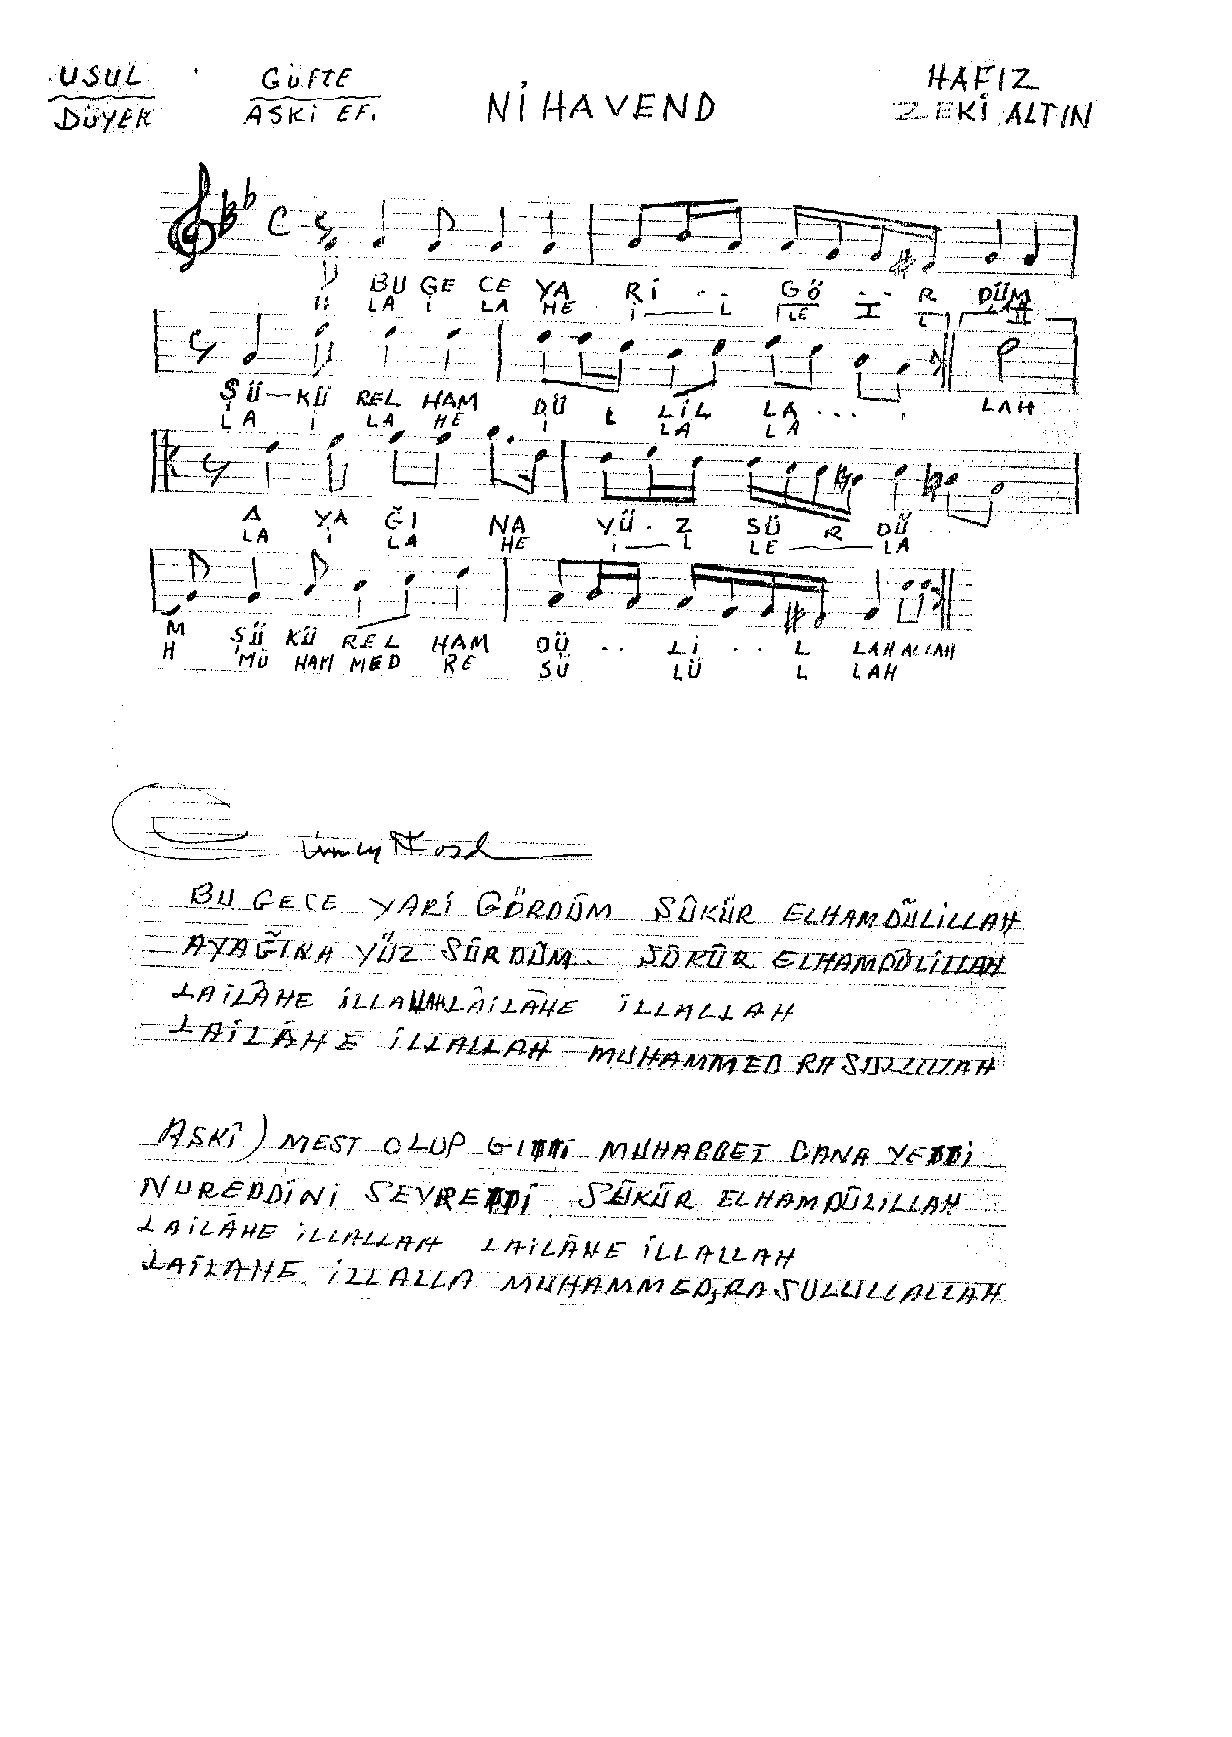 USUL GÜFTE HAFIZ
DÜYEK ASKİ EF. NİHAVEND ZEKİ ALTIN
BU GE CE YA Rİ . . GÖ . . R DÜM
LA İ LA HE İ L LE L
ŞÜ - KÜ REL HAM DÜ L LİL LA . . . . LAH
LA İ LA HE İ LA LA
A YA Ğİ NA YÜ . Z SÜ R DÜ
LA İ LA HE İ L LE LA
M ŞÜ KÜ REL HAM DÜ . . Lİ . . L LAH ALLAH
H MU HAM MED RE SÜ LÜ L LAH
BU GECE YARİ GÖRDÜM SÜKÜR ELHAMDÜLİLLAH
AYAĞINA YÜZ SÜRDÜM SÜKÜR ELHAMDÜLİLLAH
LAİLÂHE İLLALLAH LÂİLÂHE İLLALLAH
LAİLÂHE İLLALLAH MUHAMMED RASULULLAH
ASKİ) MEST OLUP GITTİ MUHABBET BANA YETTİ
NUREDDİNİ SEYRETTİ SÜKÜR ELHAMDÜLİLLAH
LAİLÂHE İLLALLAH LAİLÂHE İLLALLAH
LAİLAHE İLLALLA MUHAMMED, RASULULLALLAH